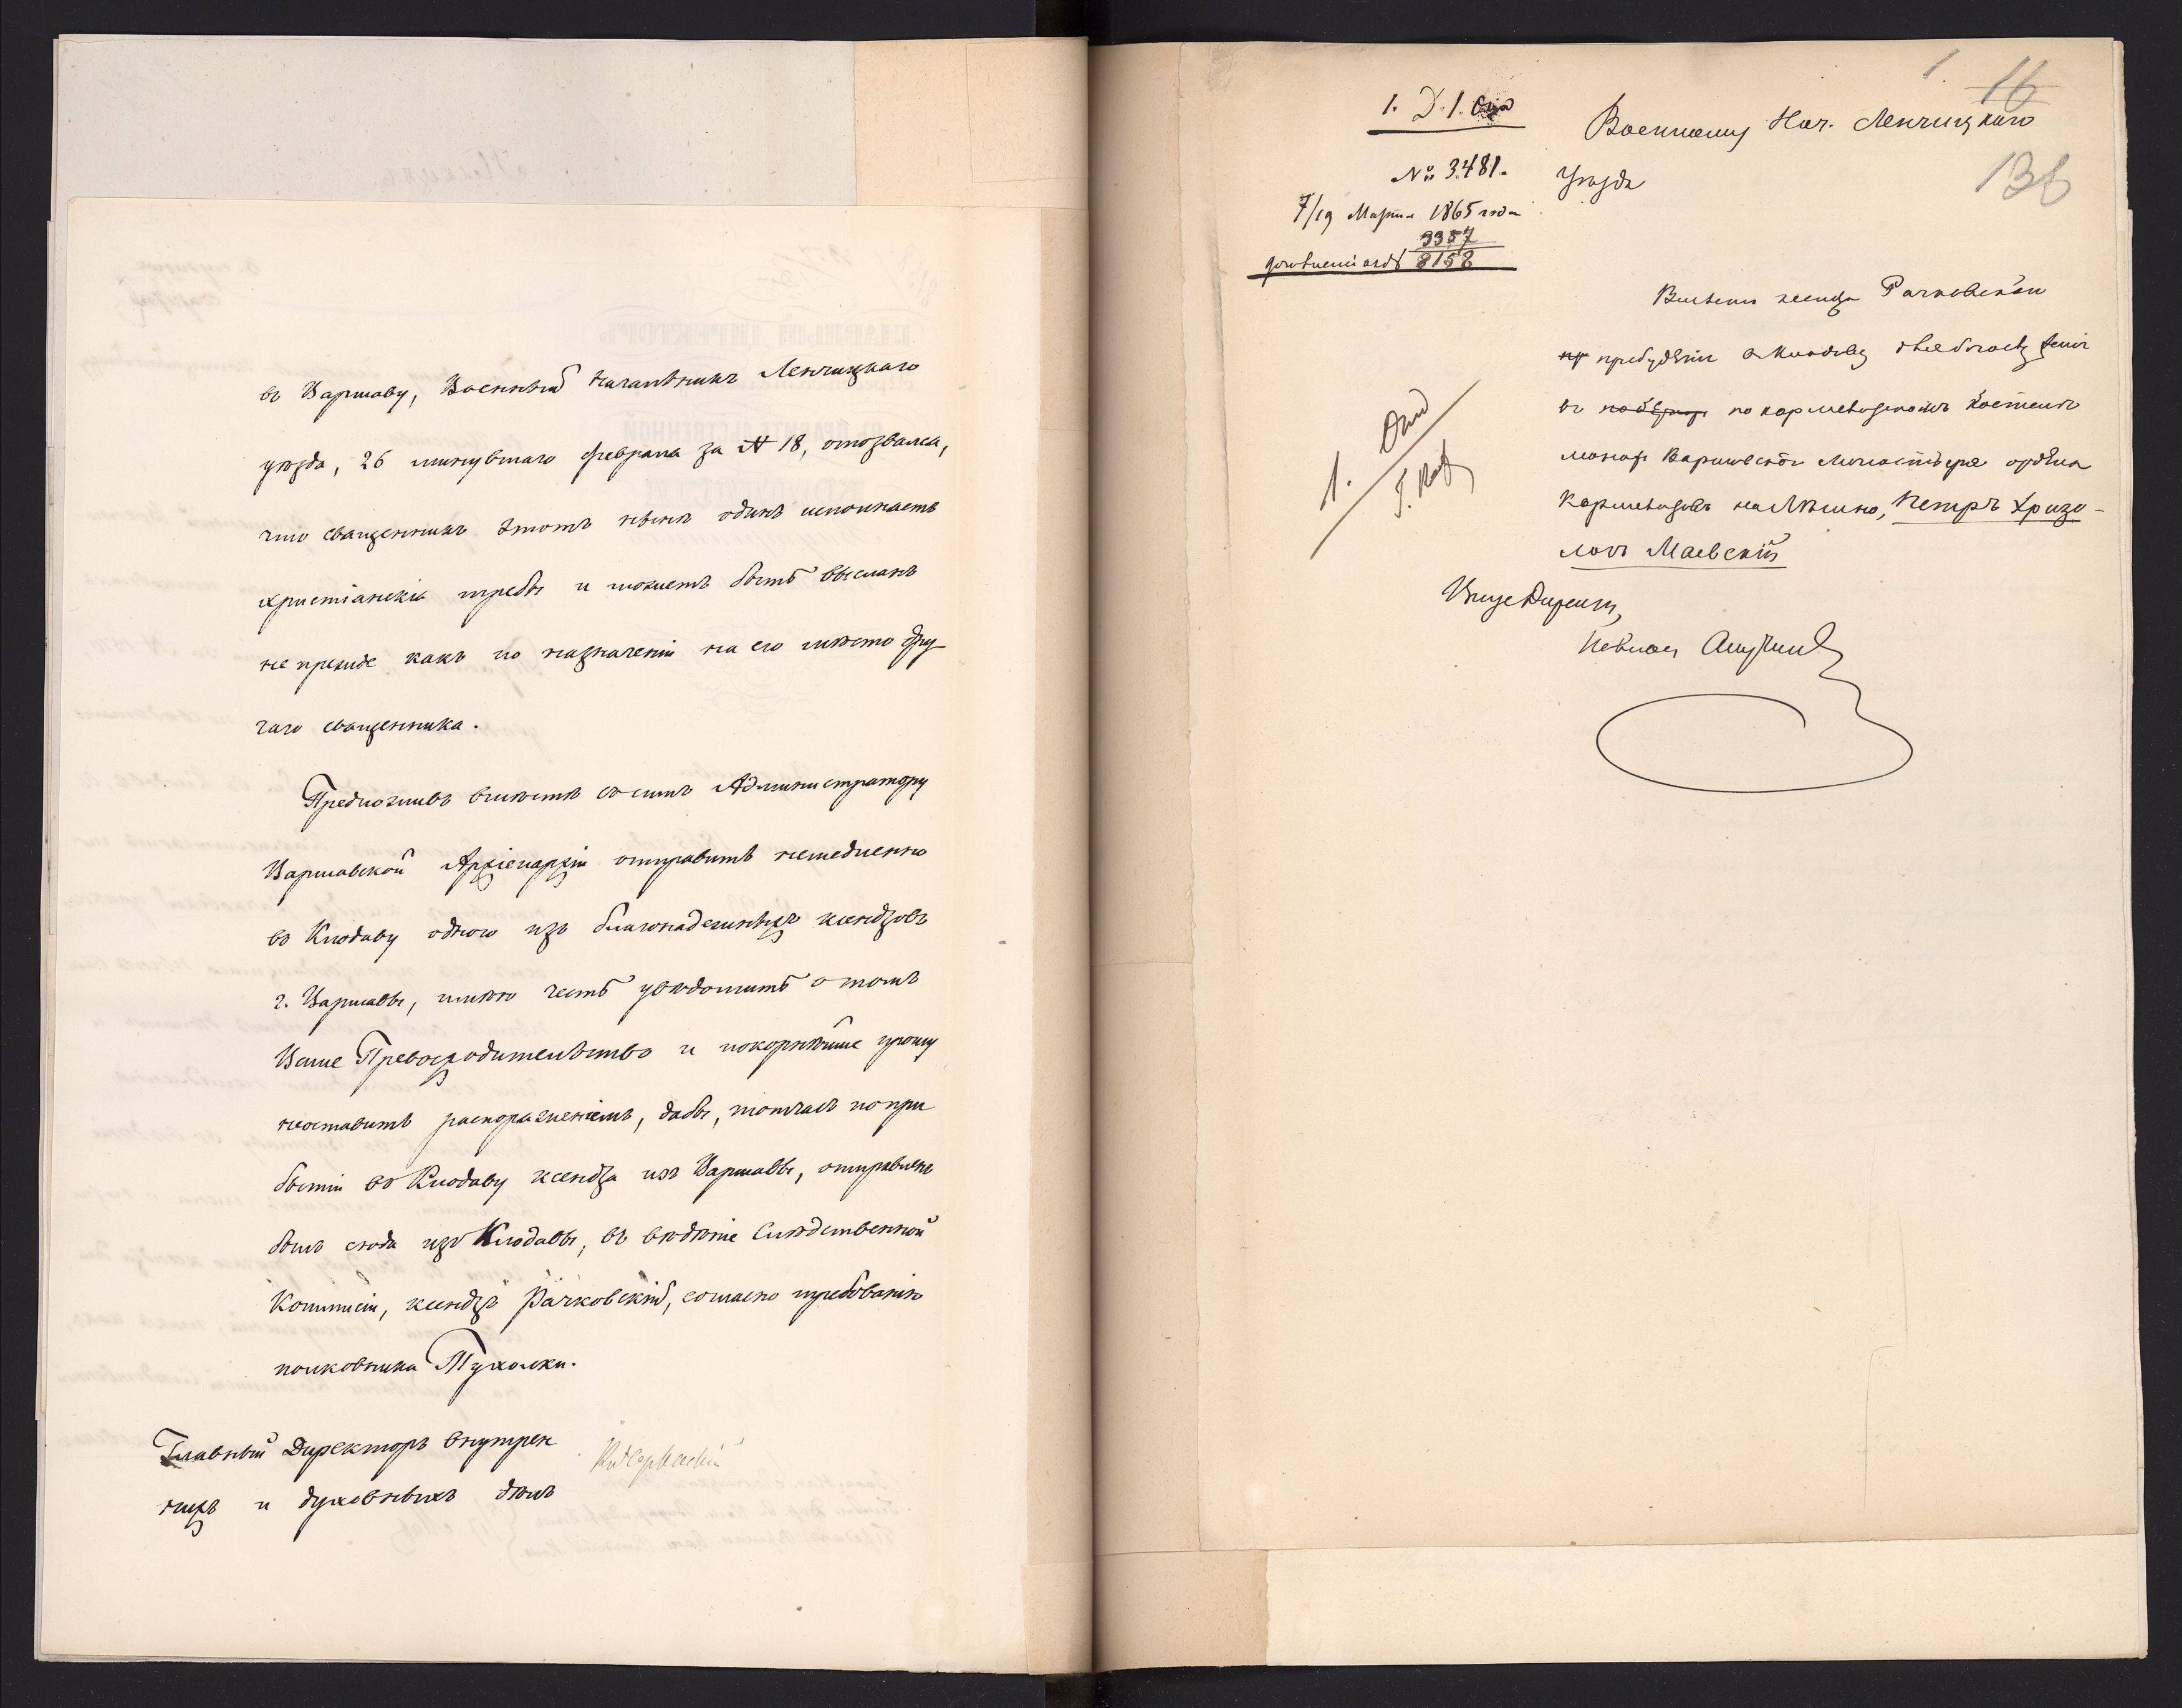 въ Варшаву, Военный Начальникъ Ленчицкаго
уѣзда, 26 минувшаго февраля за № 18, отозвался,
что священникъ этотъ нынѣ одинъ исполняетъ
христіанскія требы и можетъ быть высланъ
не прежде какъ по назначеніи на его мѣсто дру
гаго священника.
Предложивъ вмѣстѣ съ симъ Администратору
Варшавской Архіепархіи отправить немедленно
въ Клодаву одного изъ благонадежныхъ ксендзовъ
г. Варшавы, имѣю честь увѣдомить о томъ
Ваше Превосходительство и покорнѣйше прошу
неоставить распоряженіемъ, дабы, тотчасъ по при
бытіи въ Клодаву ксендза изъ Варшавы, отправленъ
былъ сюда изъ Клодавы, въ вѣдѣніе Слѣдственной
Коммисіи, ксендзъ Рачковскій, согласно требованію
полковника Тухолки.
Главный Директоръ внутрен
нихъ и духовныхъ дѣлъ
1. 16
136
1. Д. 1.
№ 3481.
7/19 Марта 1865 года
3357
8158
Военному Нач. Ленчицкаго
Уѣзда
Вмѣсто ксендза Рачковскаго
въ по кармелитскомъ костелѣ
монах Варшавскаго Монастыря ордена
Кармелитовъ на Лѣшно, Петръ Хризо-
логъ Маевскій
1.
ВицеДирект,